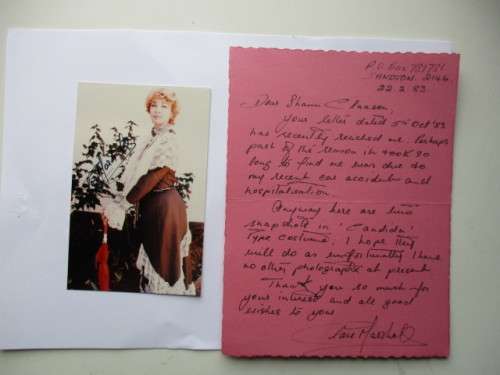 P.O. Box 781781
SANDTON. 2146
22.2.83.
Dear Shaun
Your letter dated 5th Oct '83
has recently reached me. Perhaps
part of the reason it took so
long to find me was due to
my recent car accident and
hospitalisation.
Anyway here are two
snapshots in 'Candida'
type costume. I hope they
will do as unfortunately I have
no other photographs at present
Thank you so much for
your interest and all good
wishes to you